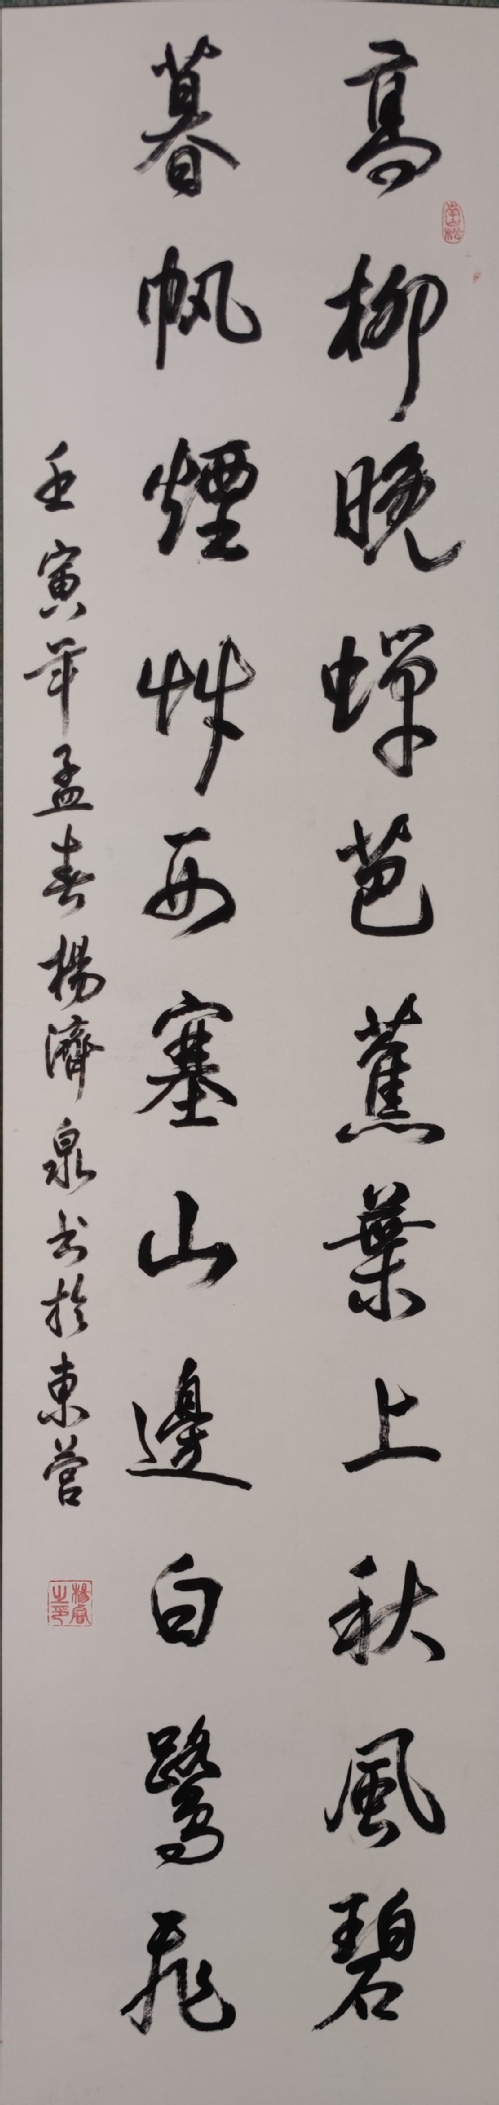 高柳晚蝉芭蕉葉上秋風碧
暮帆煙艸西塞山邊白鷺飛
壬寅年孟春楊濟泉书於東營